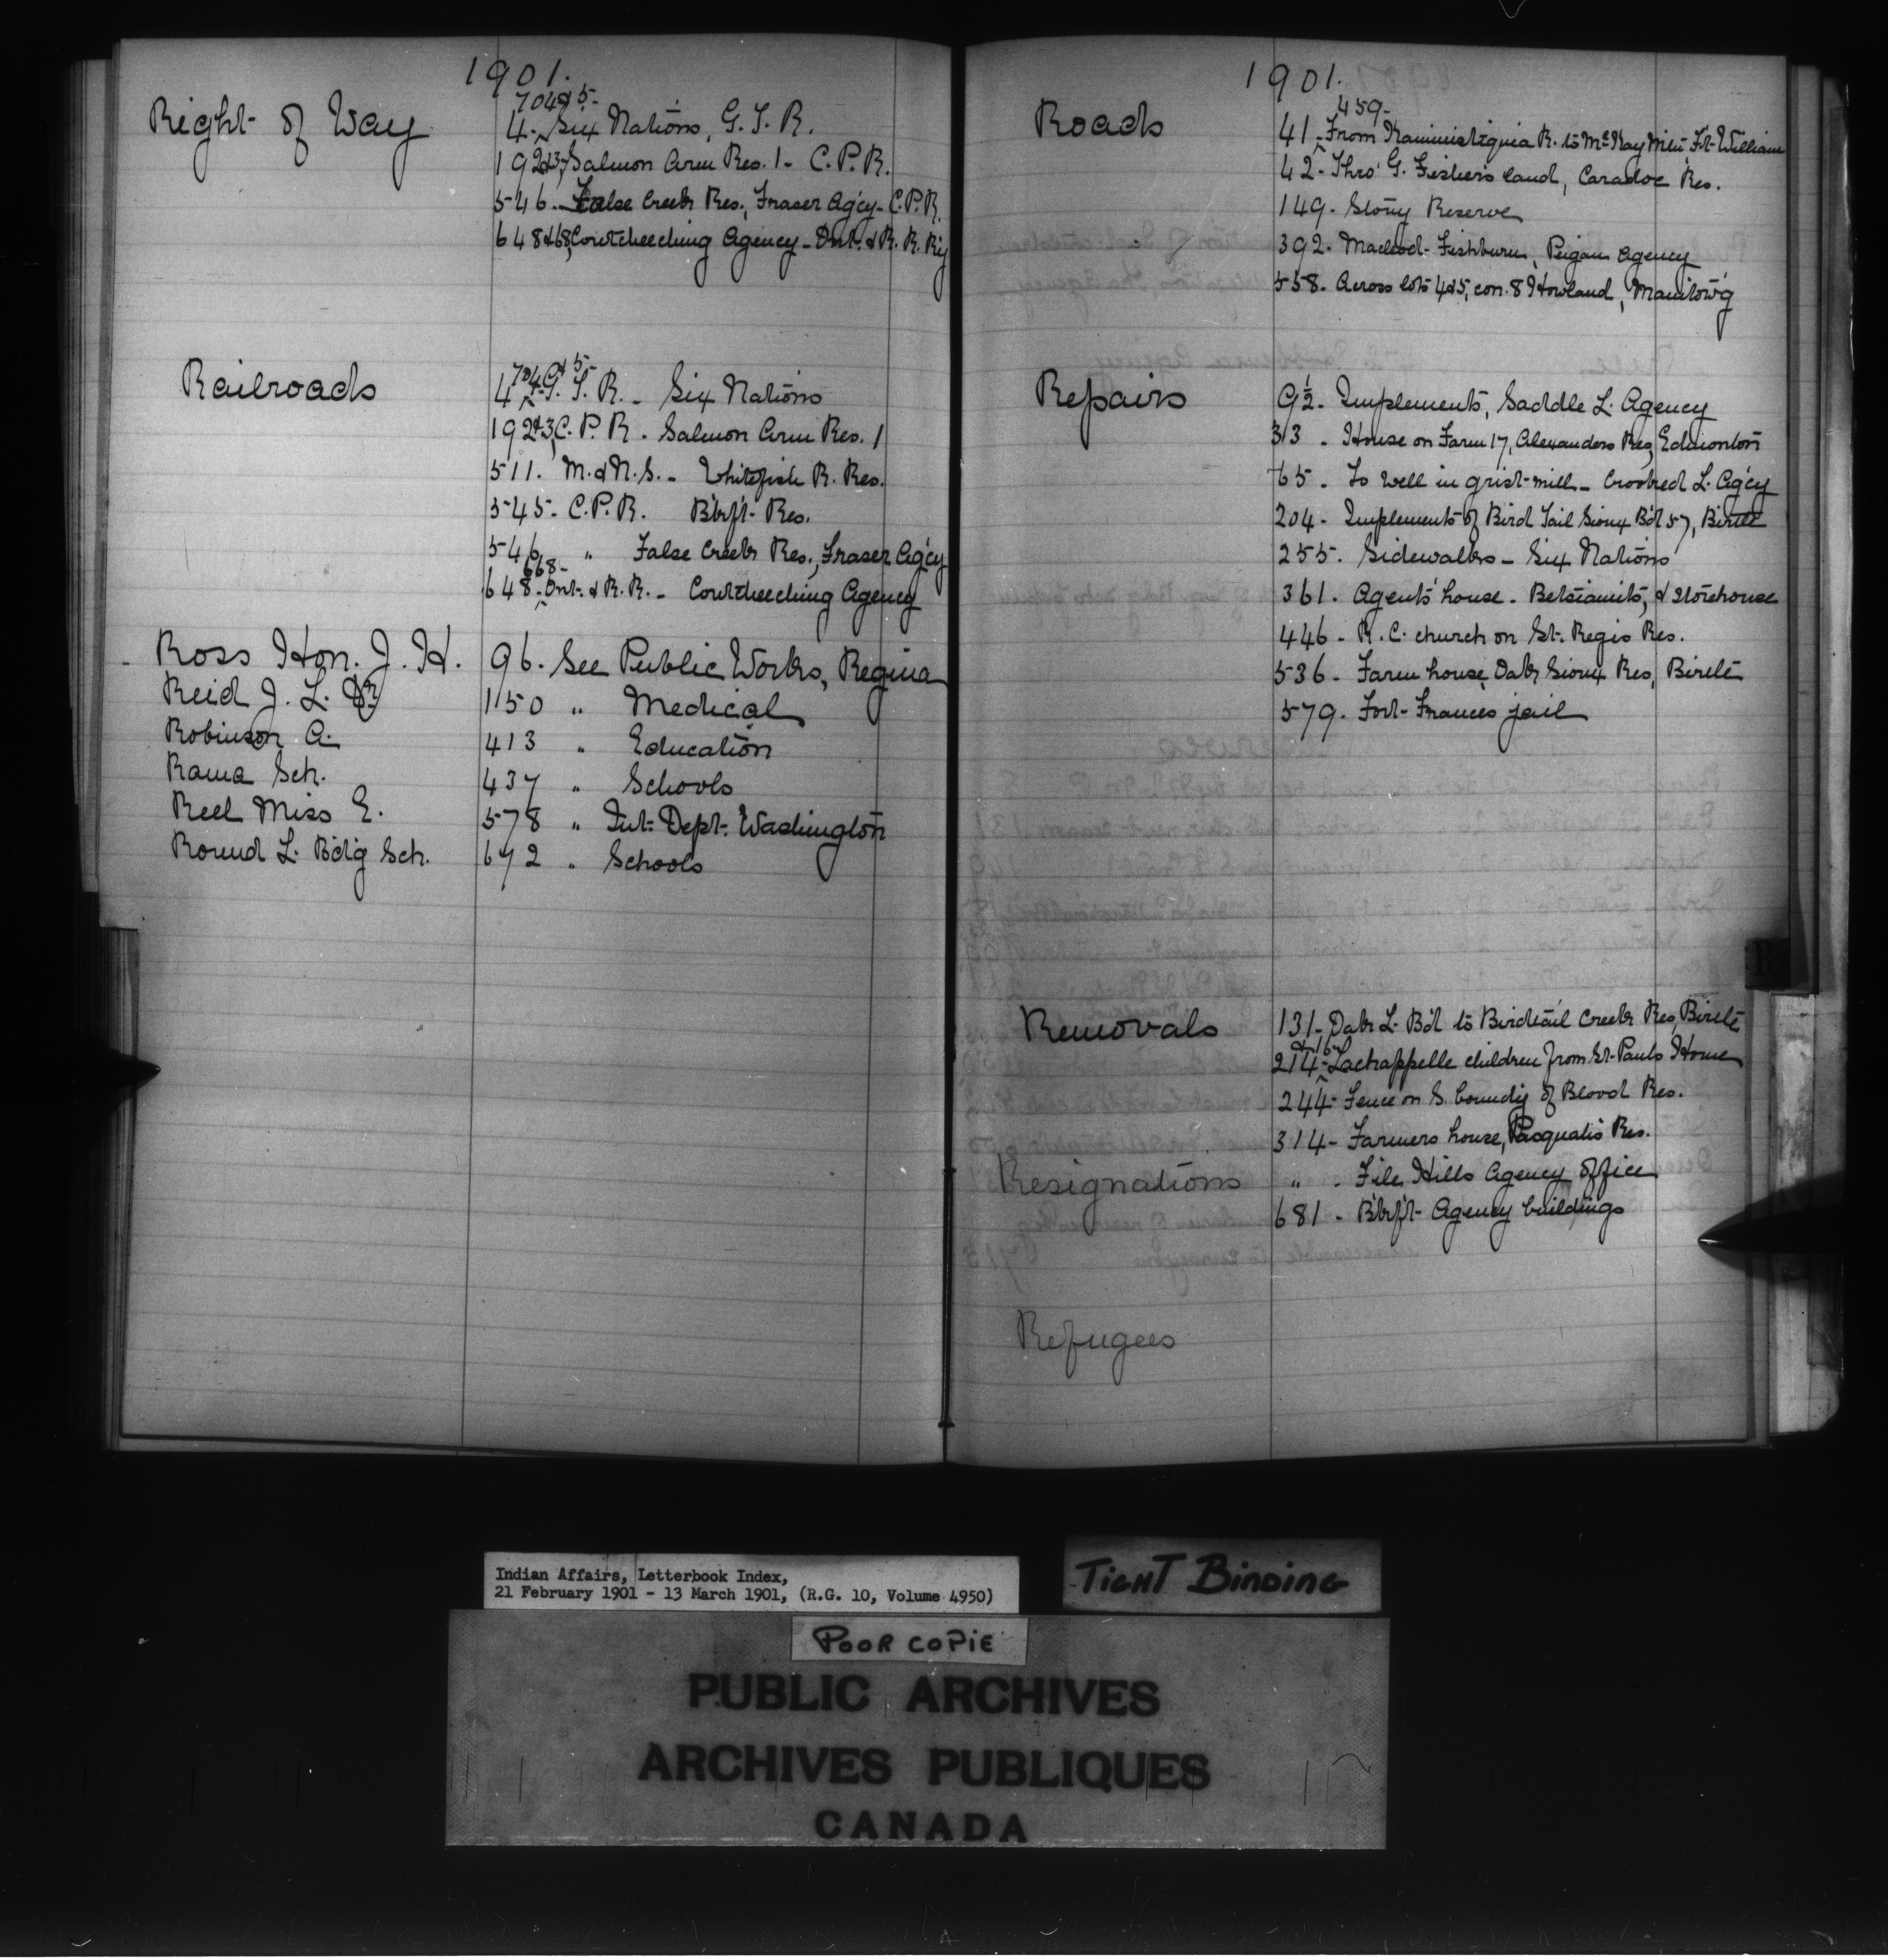 1901.
704&5-
Right of Way 4- Six Nations, G.T.R.
192&3, Salmon Arm Res. 1- C.P.R.
546- False Creek Res., Fraser Ag'cy- C.P.R.
648&68, Coutcheeching Agency- Ont. & R.R. R'y
704&5-
Railroads 4- G.T.R. - Six Nations
192&3, C.P.R. - Salmon Arm Res. 1
511. M.&N.S. - Whitefish R. Res.
545- C.P.R. B'kf't Res.
546 " False Creek Res., Fraser Ag'cy
668-
648- Ont. & R.R. - Coutcheeching Agency
Ross Hon. J. H. 96. See Public Works, Regina
Reid J. L. Dr. 1150 " Medical
Robinson A. 413 " Education
Rama Sch. 437 " Schools
Reel Miss E. 578 " Int. Dept. Washington
Round L. B'd'g Sch. 672 " Schools
1901.
459-
Roads 41- From Kaministiquia R. to McKay Mt'n Ft. William
42- Thro' G. Fisher's land, Caradoc Res.
149- Stony Reserve
392- Macleod- Fishburn, Peigan Agency
558- Across lots 4&5, con. 8 Howland, Manitow'g
Repairs 9½- Implements, Saddle L. Agency
313 - House on Farm 17, Alexanders Res, Edmonton
65 - To well in grist-mill - Crooked L. Ag'cy
204- Implements of Bird Tail Sioux B'd 57, Birtle
255. Sidewalks - Six Nations
361. Agent's house - Betsiamits, & storehouse
446 - R.C. church on St. Regis Res.
536- Farm house, Oak Sioux Res, Birtle
579. Fort Frances jail
Removals 131- Oak L. B'd to Birdtail Creek Res, Birtle
&16
214- Lachappelle children from St. Pauls Home
244- Fence on S. bound'y of Blood Res.
314- Farmers house, Pasqua's Res.
Resignations " - File Hills Agency office
681 - B'kf't Agency buildings
Refugees
R
Indian Affairs, Letterbook Index,
21 February 1901 - 13 March 1901, (R.G. 10, Volume 4950)
TIGHT BINDING
POOR COPIE
PUBLIC ARCHIVES
ARCHIVES PUBLIQUES
CANADA